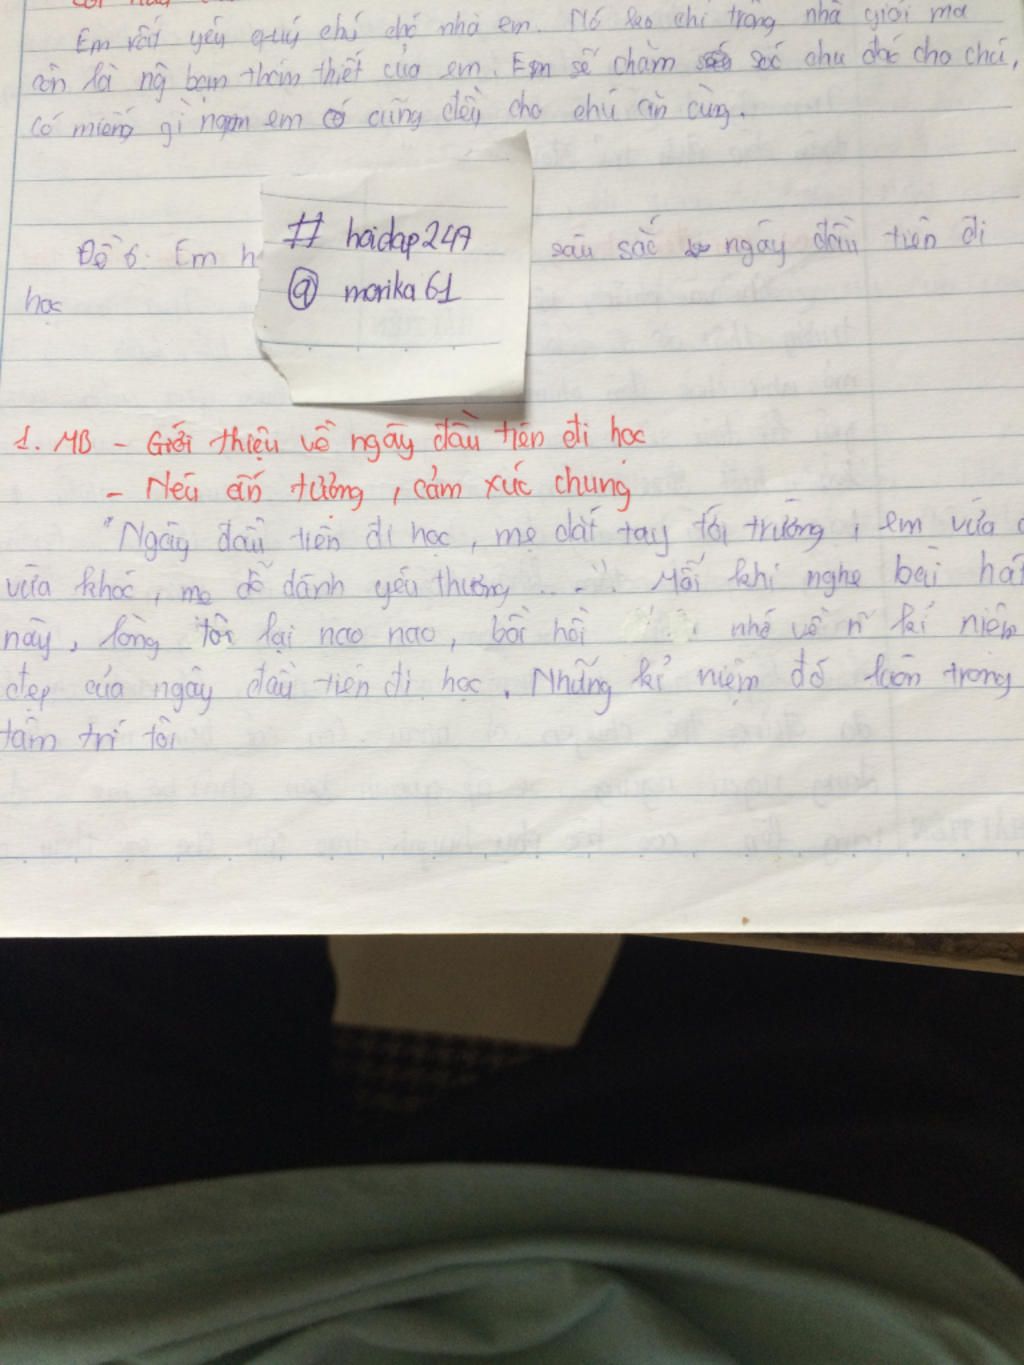 Em rất yêu quý chú chó nhà em. Nó ko chỉ trông nhà giỏi mà
còn là ng bạn thân thiết của em. Em sẽ chăm sóc chu đáo cho chú,
có miếng gì ngon em cũng đều cho chú ăn cùng.
# hoidap247
@ monika61
Đề 6: Em h sâu sắc ngày đầu tiên đi
học
1. MB - Giới thiệu về ngày đầu tiên đi học
- Nêu ấn tượng, cảm xúc chung
"Ngày đầu tiên đi học, mẹ dắt tay tới trường, em vừa
vừa khóc, mẹ dỗ dành yêu thương ...". Mỗi khi nghe bài hát
này, lòng tôi lại nao nao, bồi hồi nhớ về n~ kỉ niệm
đẹp của ngày đầu tiên đi học. Những kỉ niệm đó luôn trong
tâm trí tôi